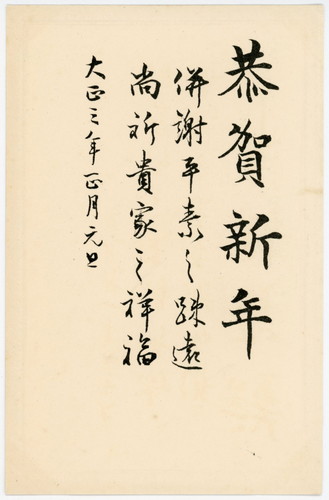 恭賀新年
併謝平素之疎遠
尚祈貴家之祥福
大正三年一正月元旦